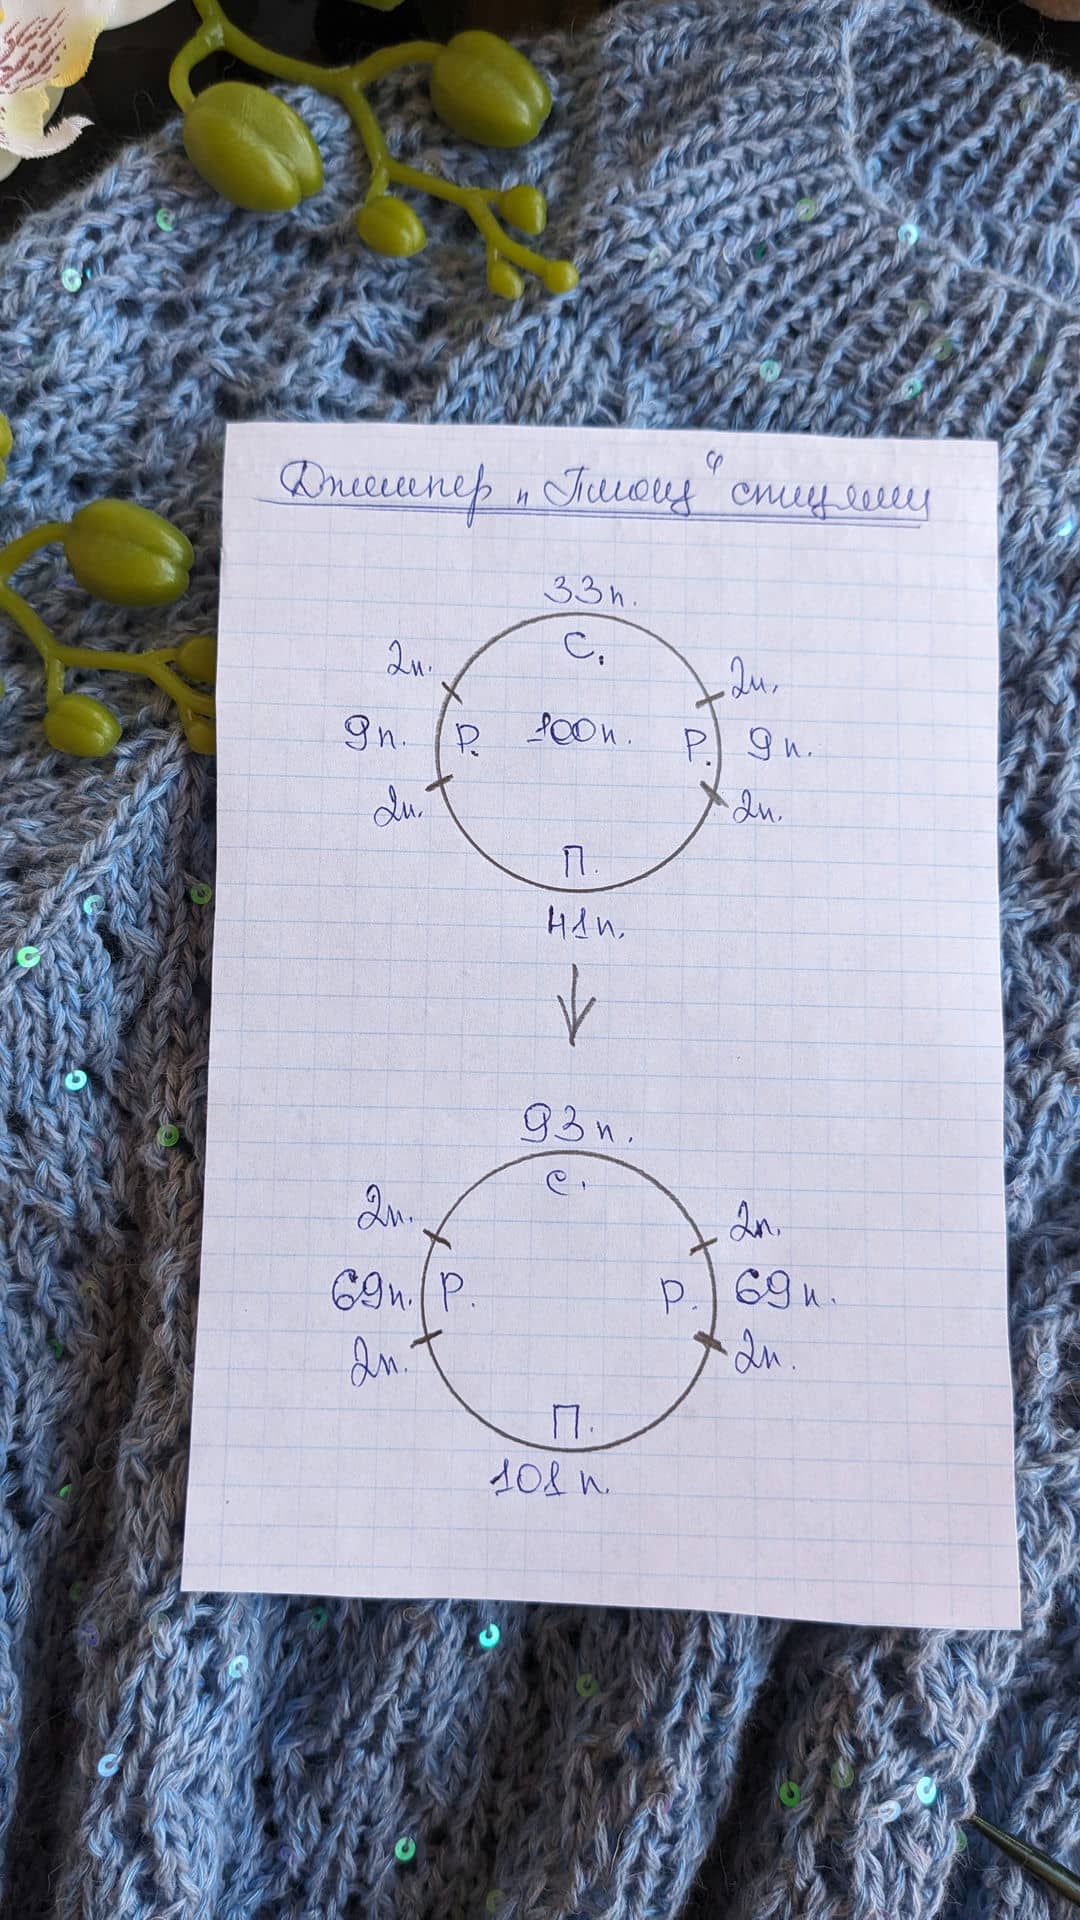 Джемпер „Плющ“ спицами
33п.
С.
2п. 2п.
9п. Р. 100п. Р. 9п.
2п. 2п.
П.
41п.
93п.
С.
2п. 2п.
69п. Р. Р. 69п.
2п. 2п.
П.
101п.